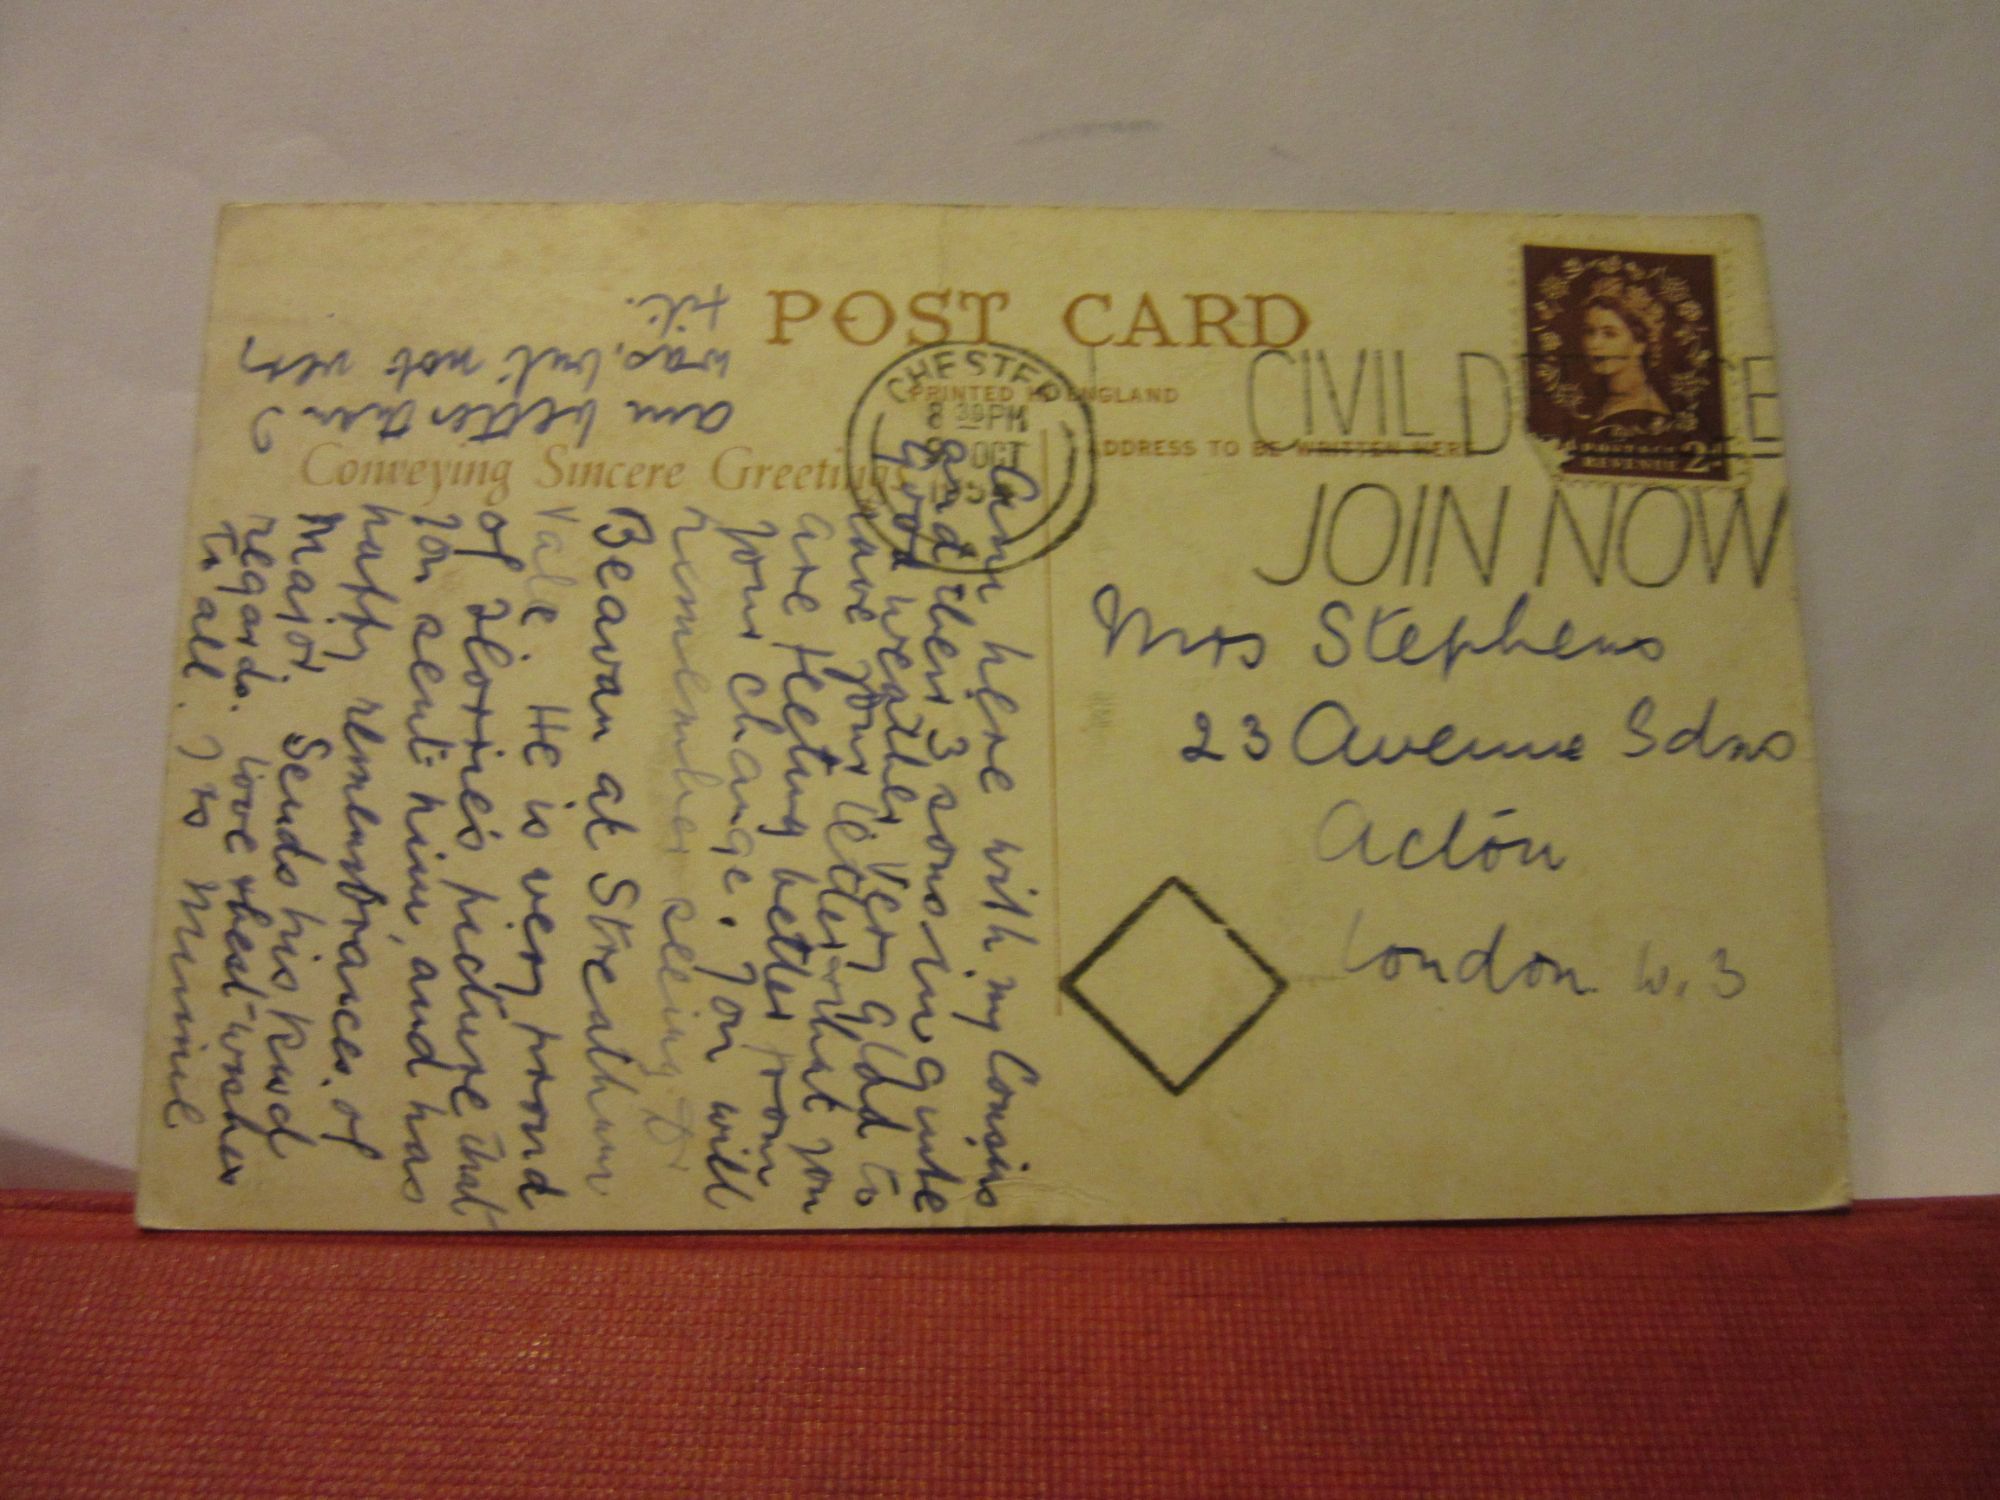 POST CARD
PRINTED IN ENGLAND
ADDRESS TO BE WRITTEN HERE
Conveying Sincere Greetings
CHESTER
8 30 PM
OCT
CIVIL D CE
JOIN NOW
POSTAGE
REVENUE 2D
Mrs Stephens
23 Avenue Gdns
Acton
London W.3
Am here with my Cousins
and their 3 sons in quite
good weather Very glad to
have your letter & that you
are feeling better from
your change. You will
remember seeing Dr
Beavan at Streatham
Vale. He is very proud
of Glorrie's picture that
you sent him, and has
happy remembrances of
Major. Sends his kind
regards. love & best wishes
to all. Minnie
I
am better than I
was, but not very
fit.